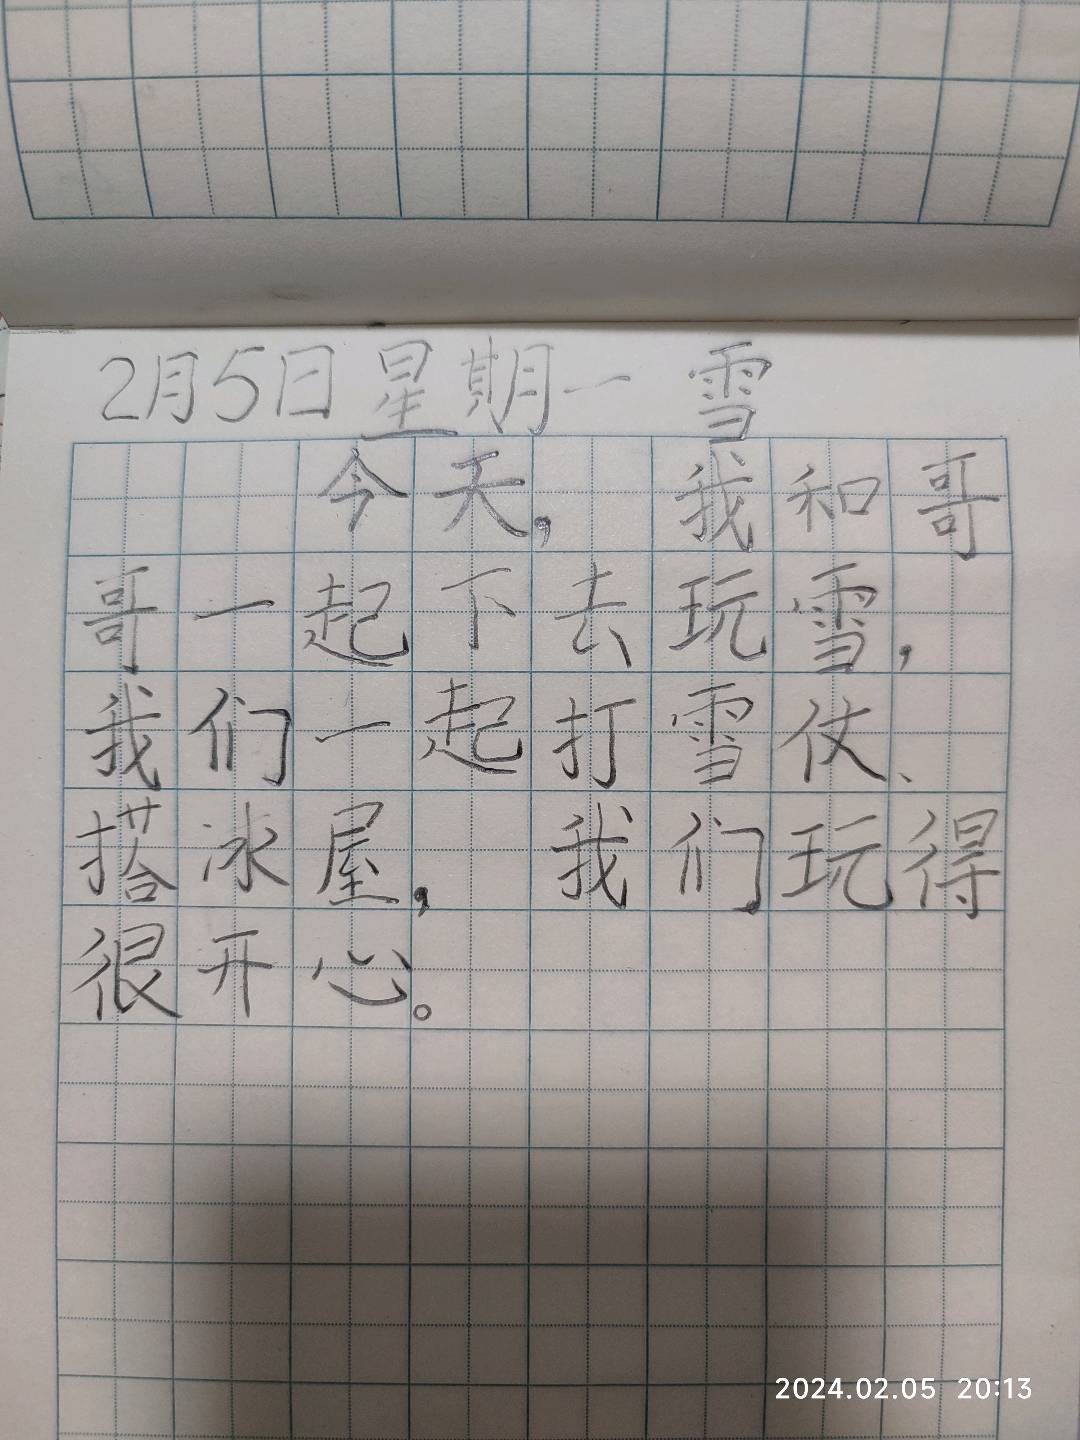 2月5日星期一 雪
今天，我和哥
哥一起下去玩雪，
我们一起打雪仗、
搭冰屋，我们玩得
很开心。
2024.02.05 20:13